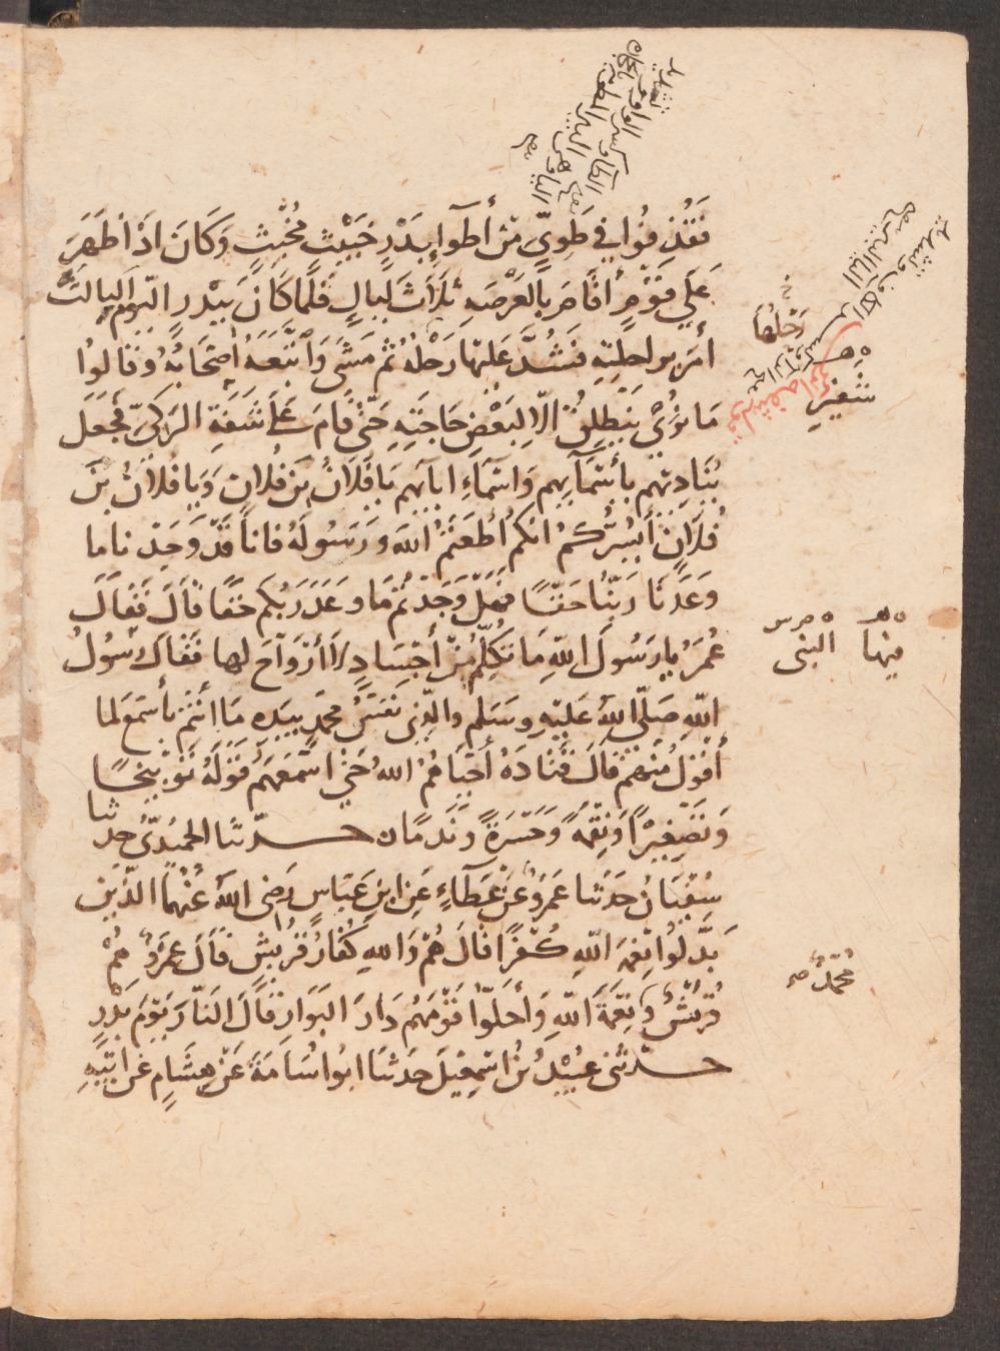 فَقُذِفُوا فِي طَوِيٍّ مِنْ أَطْوَاءِ بَدْرٍ خَبِيثٍ مُخْبِثٍ وَكَانَ اذَا ظَهَرَ
عَلَى قَوْمٍ أَقَامَ بِالْعَرْصَةِ ثَلَاثَ لَيَالٍ فَلَمَّا كَانَ بِبَدْرٍ الْيَوْمَ الثَّالِثَ
أمَرَ براحلتِهِ فَشُدَّ عَلَيْهَا رَحْلُهَا ثُمَّ مَشَى وَاتَّبَعَهُ أَصْحَابُهُ وَقَالُوا
مَا نُرَى يَنْطَلِقُ الّا لِبَعْضِ حَاجَتِهِ حَتَّى قَامَ عَلَى شَفَةِ الرَّكِيِّ فَجَعَلَ
يُنَادِيهِمْ بِأَسْمَائِهِمْ وَاسْمَاءِ ابَائِهِمْ يَا فُلَانُ بْنَ فُلَانٍ وَيَا فُلَانُ بْنَ
فُلَانٍ أَيَسُرُّكُمْ انَّكُمْ أَطَعْتُمُ اللهَ وَرَسُولَهُ فَانَّا قَدْ وَجَدْنَا مَا
وَعَدَنَا رَبُّنَا حَقًّا فَهَلْ وَجَدْتُمْ مَا وَعَدَ رَبُّكُمْ حَقًّا قَالَ فَقَالَ
عُمَرُ يَا رَسُولَ اللهِ مَا تُكَلِّمُ مِنْ أَجْسَادٍ لَا أَرْوَاحَ لها فَقَالَ رَسُولُ
اللهِ صَلَّى اللهُ عَلَيْهِ وسَلم والَّذِي نَفْسُ مُحَمَّدٍ بِيَدِهِ مَا انْتُمْ بِأَسْمَعَ لما
أَقُولُ مِنْهُمْ قَالَ قَتَادَةُ أَحْيَاهُمُ اللهُ حَتَّى اسْمَعَهُمْ قَوْلَهُ تَوْبِيخًا
وَتَصْغِيرًا وَنِقْمَةً وَحَسْرَةً وَنَدَمًا حدّثنا الحُمَيْدِيُّ حدثنا
سُفْيَانُ حَدَثَنا عَمْرٌو عَنْ عَطَاءٍ عَنِ ابنِ عَبَّاسٍ رَضِىَ اللهُ عَنْهُمَا الَّذِينَ
بَدَّلُوا نِعْمَةَ اللهِ كُفْرًا قَالَ هُمْ وَاللهِ كُفَّارُ قُرَيْشٍ قَالَ عَمْرٌو هُمْ
قُرَيْشٌ وَنِعْمَةُ اللهِ وَأَحَلُّوا قَوْمَهُمْ دَارَ الْبَوَارِ قَالَ النَّارَ يَوْمَ بَدْرٍ
حدّثنى عُبَيْدُ بْنُ اسْمعِيلَ حَدَثَنَا ابُو اُسَامَةَ عَنْ هِشَامٍ عَنْ ابِيهِ
رَحْلُهَا
شَفِيرِ
فيها
النبى
مُحَمَّدٌ صه